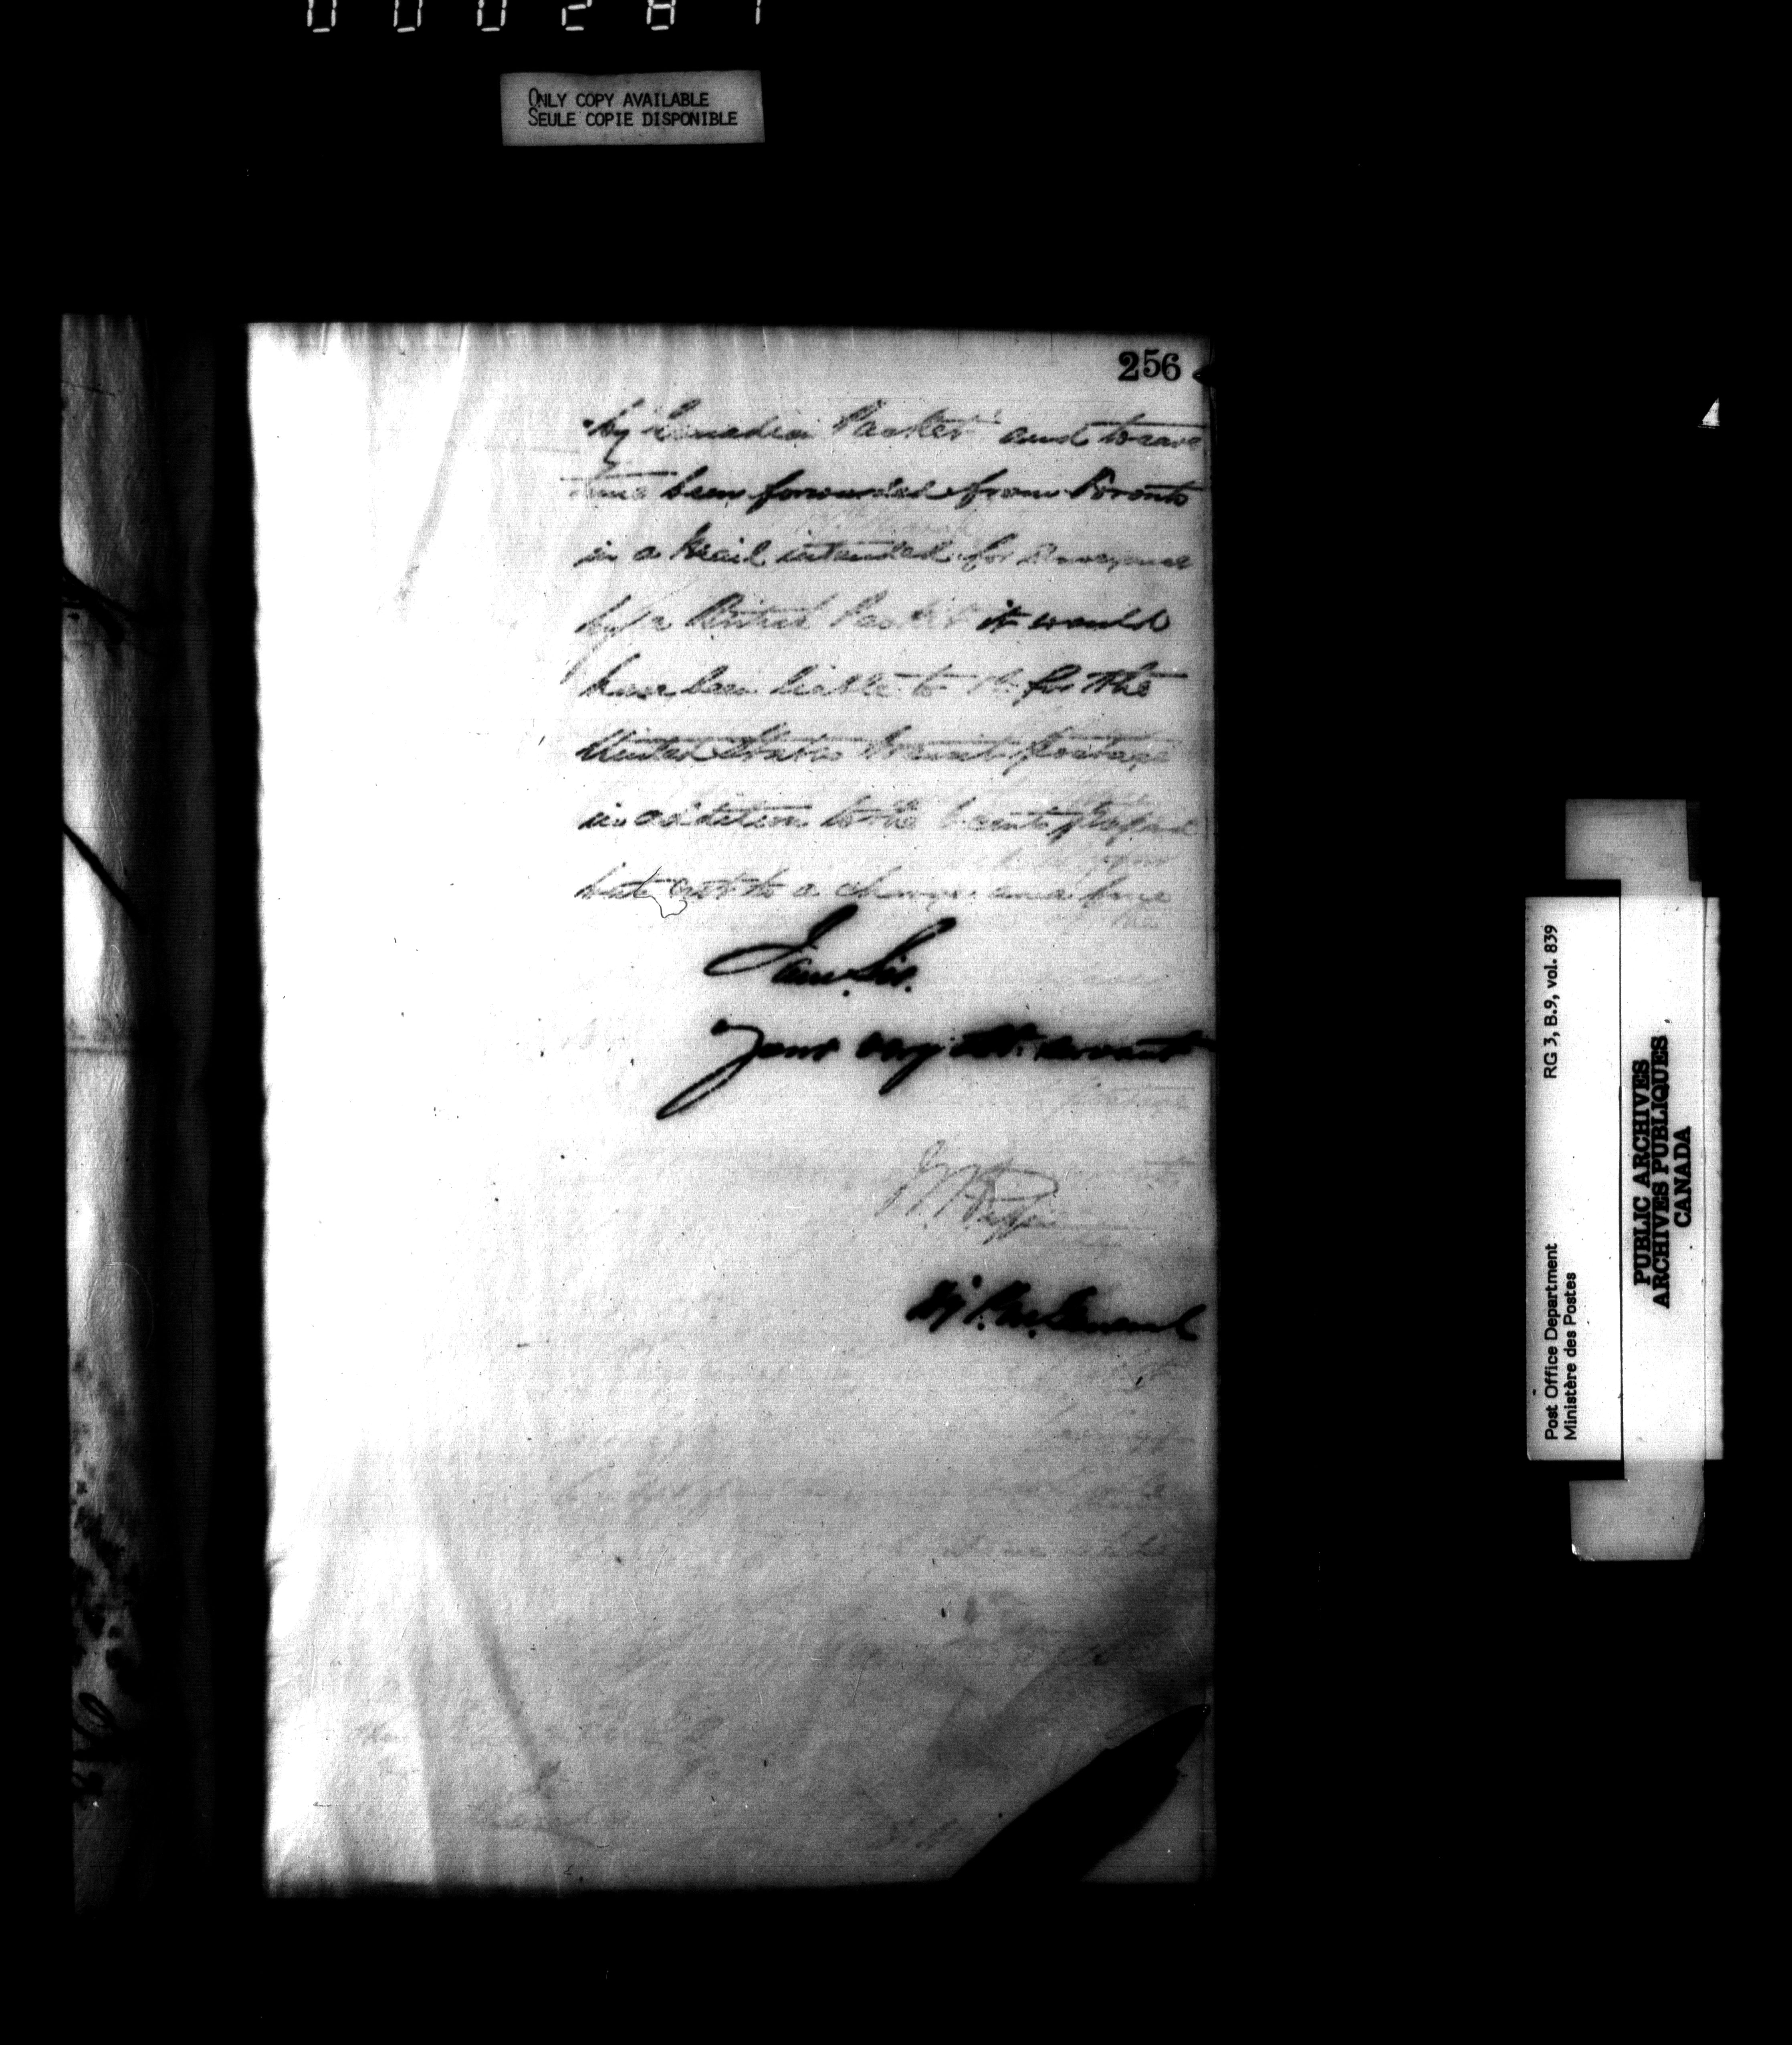 000281
ONLY COPY AVAILABLE
SEULE COPIE DISPONIBLE
256
"by Canadian Packet" and to save
time been forwarded from Toronto
in a Mail intended for conveyance
by a British Packet it would
have been liable to for the
United States transit postage
in addition to the cents
but not to a charge and fine
I am. Sir.
Your very obt. servant
D'y P. M. General
RG 3, B.9, vol. 839
Post Office Department
Ministère des Postes
PUBLIC ARCHIVES
ARCHIVES PUBLIQUES
CANADA